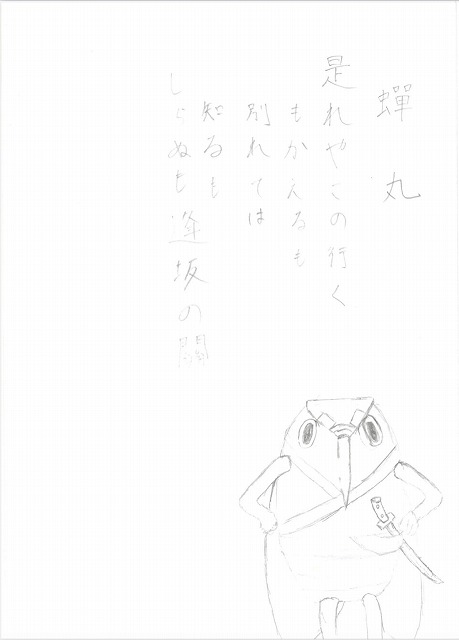 蟬丸
是れやこの行く
もかえるも
別れては
知るも
しらぬも逢坂の関